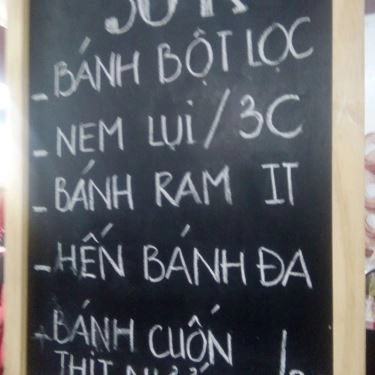 30K
- BÁNH BỘT LỌC
- NEM LỤI / 3C
- BÁNH RAM IT
- HẾN BÁNH ĐA
+ BÁNH CUỐN
THỊT